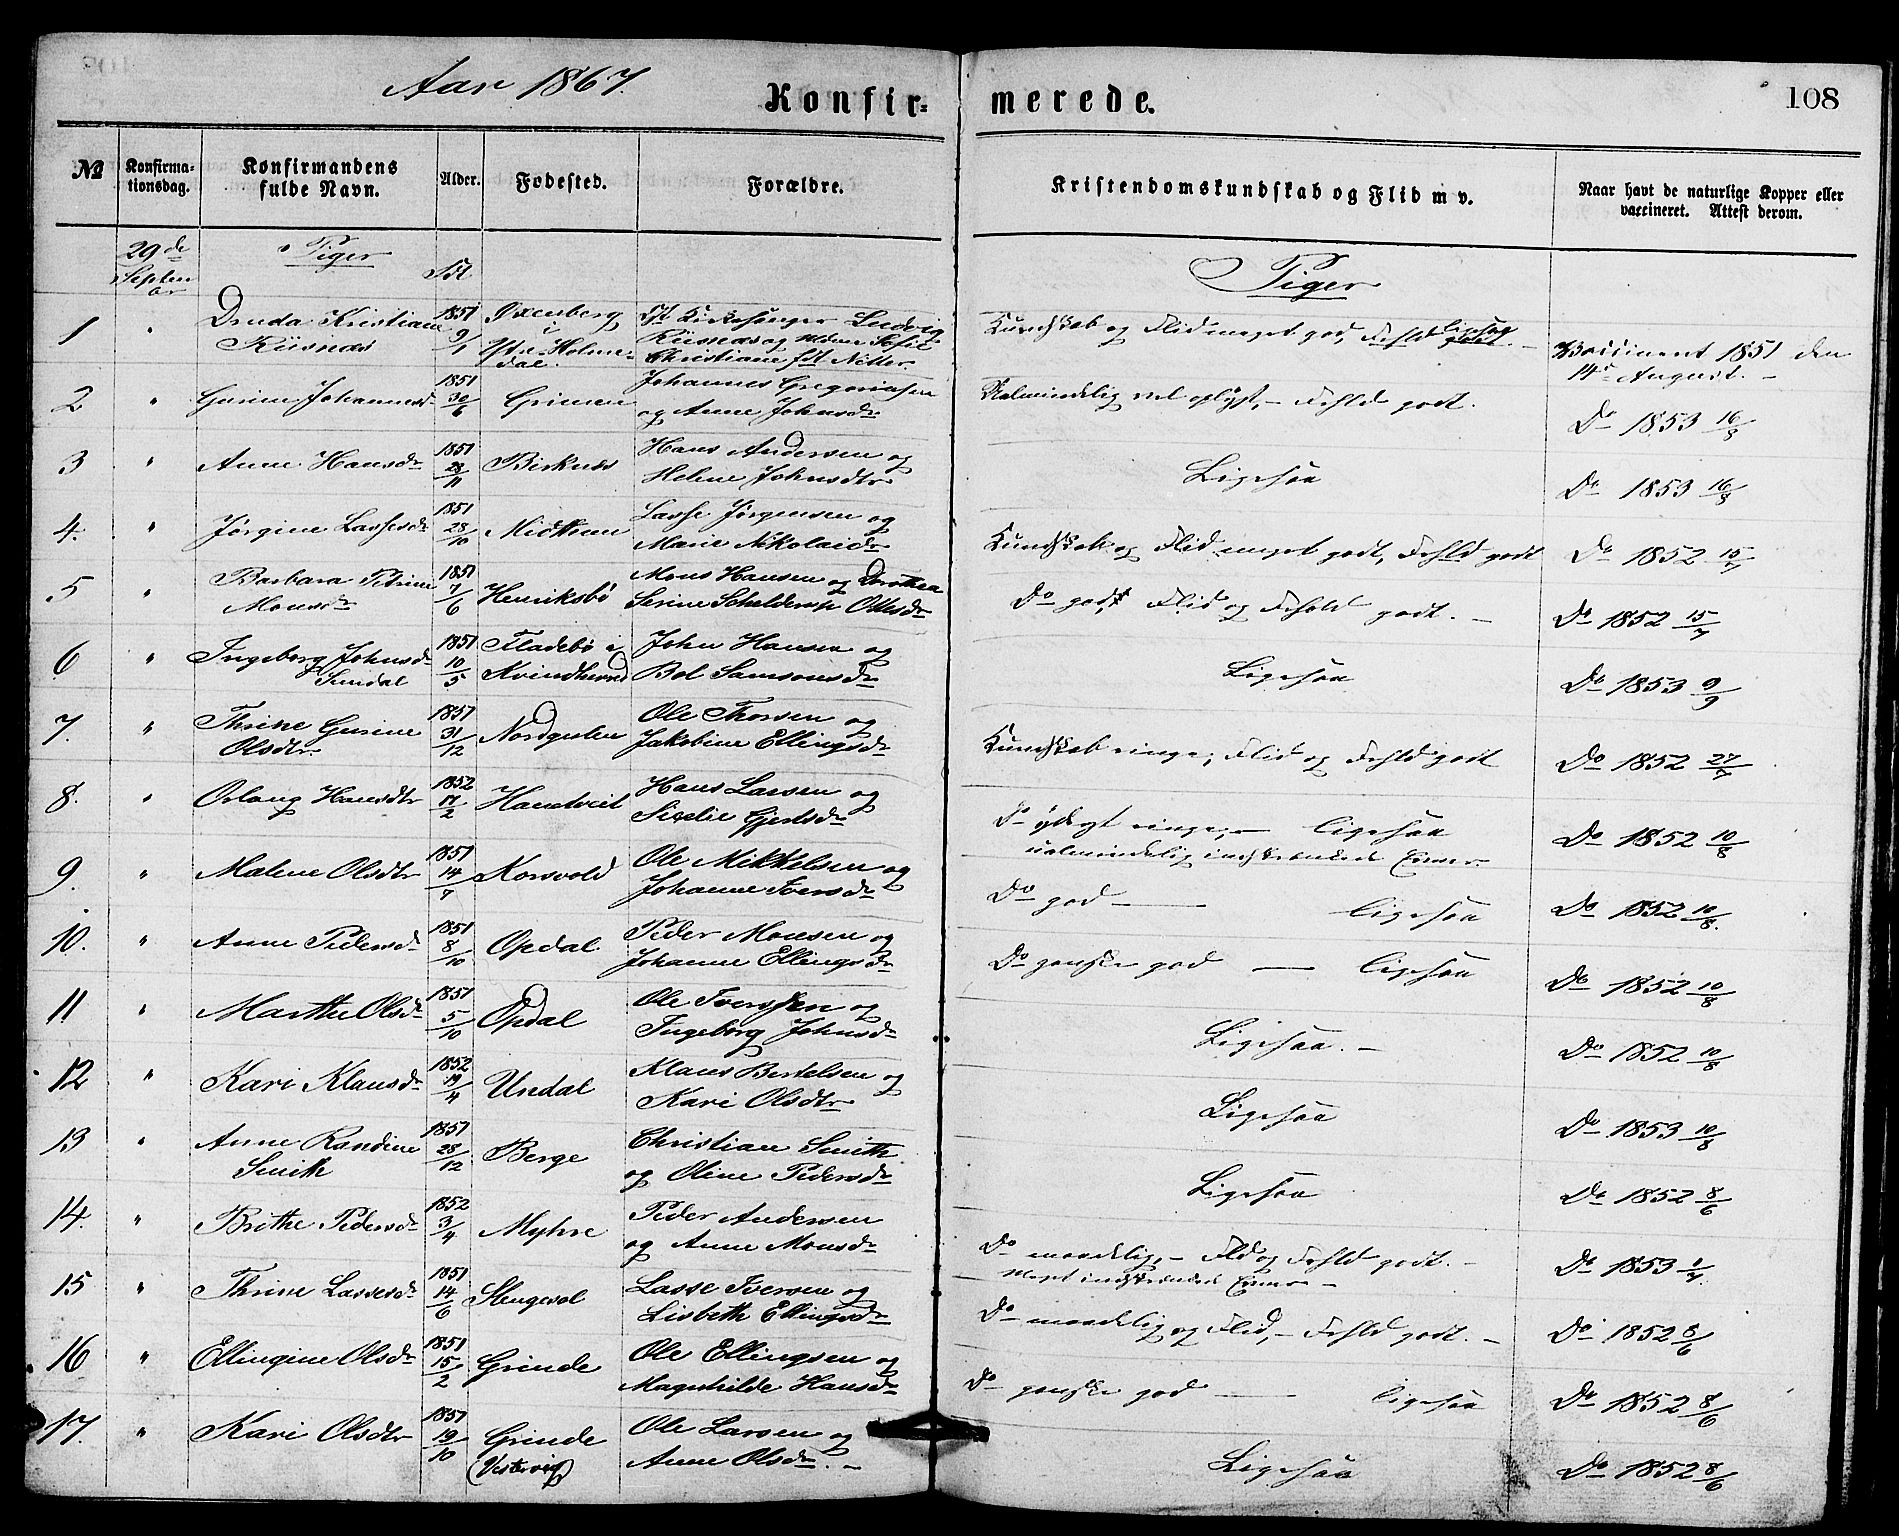 Aar 1867.
Konfir- merede. 108
No Konfirma- tionsdag. Konfirmandens fulde Navn. Alder. Fødested. Forældre. Kristendomskundskab og Flid m v. Naar havt de naturlige Kopper eller vaccineret. Attest derom.
29de September Piger Født Piger
1 " Druda Kristiane Riisnæs 1851 9/1 Øxenberg i Ytre-Holmedal. Kirkesanger Ludvig Riisnæs og Sofie Christiane fdt Nitter Kundskab og Flid meget god, Forhld ligesaa Vaccineret 1851 den 14de August. -
2 " Gurine Johannesdr 1851 30/6 Grinen Johannes Gregoriusen og Anne Johnsdr Ualmindelig vel oplyst, - Forhld godt. Do 1853 16/8
3 " Anne Hansdr 1851 28/11 Birknæs Hans Andersen og Helene Johnsdtr Ligesaa Do 1853 16/8
4. " Jørgine Lassesdr 1851 28/10 Midttun Lasse Jørgensen og Marie Nikolaidr Kundskab og Flid meget godt, Forhld godt Do 1852 15/7
5 " Barbara Petrine Monsdr 1851 7/6 Henriksbø Mons Hansen og Dorothea Serine Schelderup Ottesdr Do godt, Flid og Forhold godt. - Do 1852 15/7
6 " Ingeborg Johnsdr Sundal 1851 10/5 Fladebø i Kvindherred John Hansen og Bol Samsonsdr Ligesaa Do 1853 9/9
7. " Thrine Gurine Olsdtr. 1851 31/12 Nordgulen Ole Thorsen og Jakobine Ellingsdr Kundskab ringe, Flid og Forhld godt Do 1852 27/7
8. " Oslaug Hansdtr 1852 17/2 Hantveit Hans Larsen og Sixelie Gjertsdr Do yderst ringe, - ligesaa ualmindelig indskrænkede Evner Do 1852 10/8
9. " Malene Olsdtr 1851 14/7 Korsvold Ole Mikkelsen og Johanne Iversdr Do god - ligesaa Do 1852 10/8.
10. " Anne Pedersdr 1851 8/10 Opdal Peder Monsen og Johanne Ellingsdr Do ganske god - ligesaa Do 1852 10/8
11 " Marthe Olsdr 1851 5/10 Opdal Ole Iversen og Ingeborg Johnsdr Ligesaa. - Do 1852 10/8
12 " Kari Klausdr 1852 19/4 Undal Klaus Bertelsen og Kari Olsdtr Ligesaa Do 1853 10/8
13 " Anne Randine Smith 1851 28/12 Berge Christian Smith og Oline Pedersdr Ligesaa Do 1852 8/6
14. " Brithe Pedersdr 1852 3/4 Myhre Peder Andersen og Anne Monsdr Do maadelig, - Flid og Forhld godt. - Meget indskrænkede Evner - Do 1853 1/7.
15 " Thrine Lassesdr 1851 14/6 Stengesol Lasse Iversen og Lisbeth Ellingsdr Do maadelig og Flid, - Forhld godt. - Do 1852 8/6
16 " Ellingine Olsdr 1851 15/2 Grinde Ole Ellingsen og Magnhilde Hansdr Do ganske god - ligesaa Do 1852 8/6
17. " Kari Olsdtr 1851 19/10 Grinde (Vestervig) Ole Larsen og Anne Olsdr. - Ligesaa Do 1852 8/6